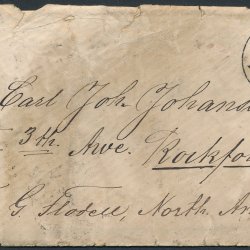 Carl Joh. Johans
3th. Ave. Rockfo
G. Flodell, North Am